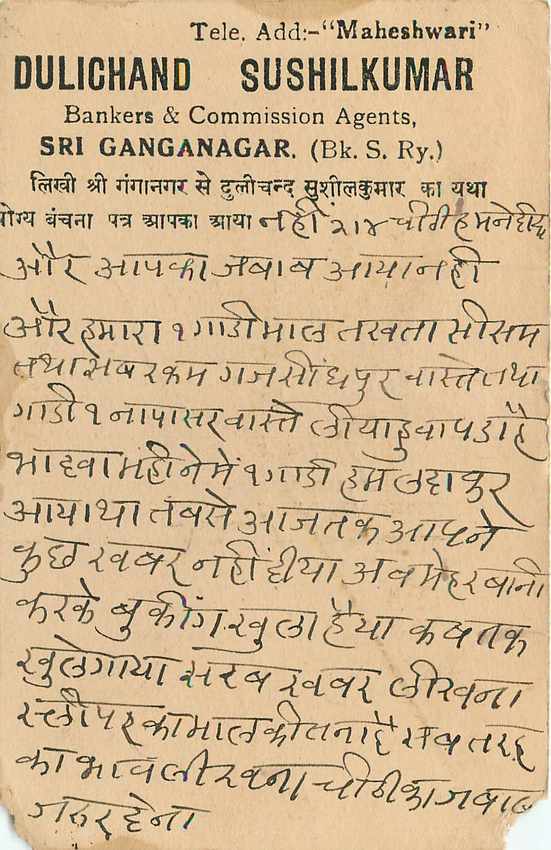 Tele. Add:-"Maheshwari"
DULICHAND SUSHILKUMAR
Bankers & Commission Agents,
SRI GANGANAGAR. (Bk. S. Ry.)
लिखी श्री गंगानगर से दुलीचन्द सुशीलकुमार का यथा
योग्य बंचना पत्र आपका आया नहीं २।४ चीठी हमने दी
और आपका जबाब आया नही
और हमारा १ गाडी माल तखता सीसम
तथा रकम गजसींघपुर वास्ते तथा
गाडी १ नापासर वास्ते लीया हुवा पडा है
भादवा महीने में १ गाडी हम लदाकर
आया था तबसे आज तक आपने
कुछ खबर नहीं दीया अब मेहरबानी
करके बुकींग खुला है या कब तक
खुलेगा या सरब खबर लीखना
स्लीपर का माल कीतना है सब तरह
का भाव लीखना चीठी का जबाब
जरुर देना